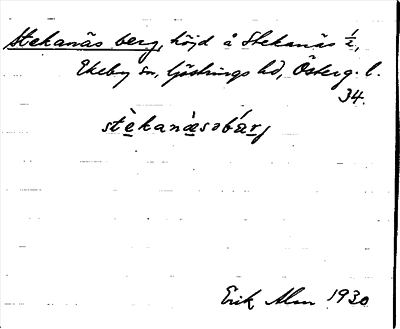 Stekanäs berg, höjd å Stekanäs ½,
Ekeby sn, Göstrings hd, Österg. l.
34.
stèkanæ̀səbárj
Erik Alm 1930